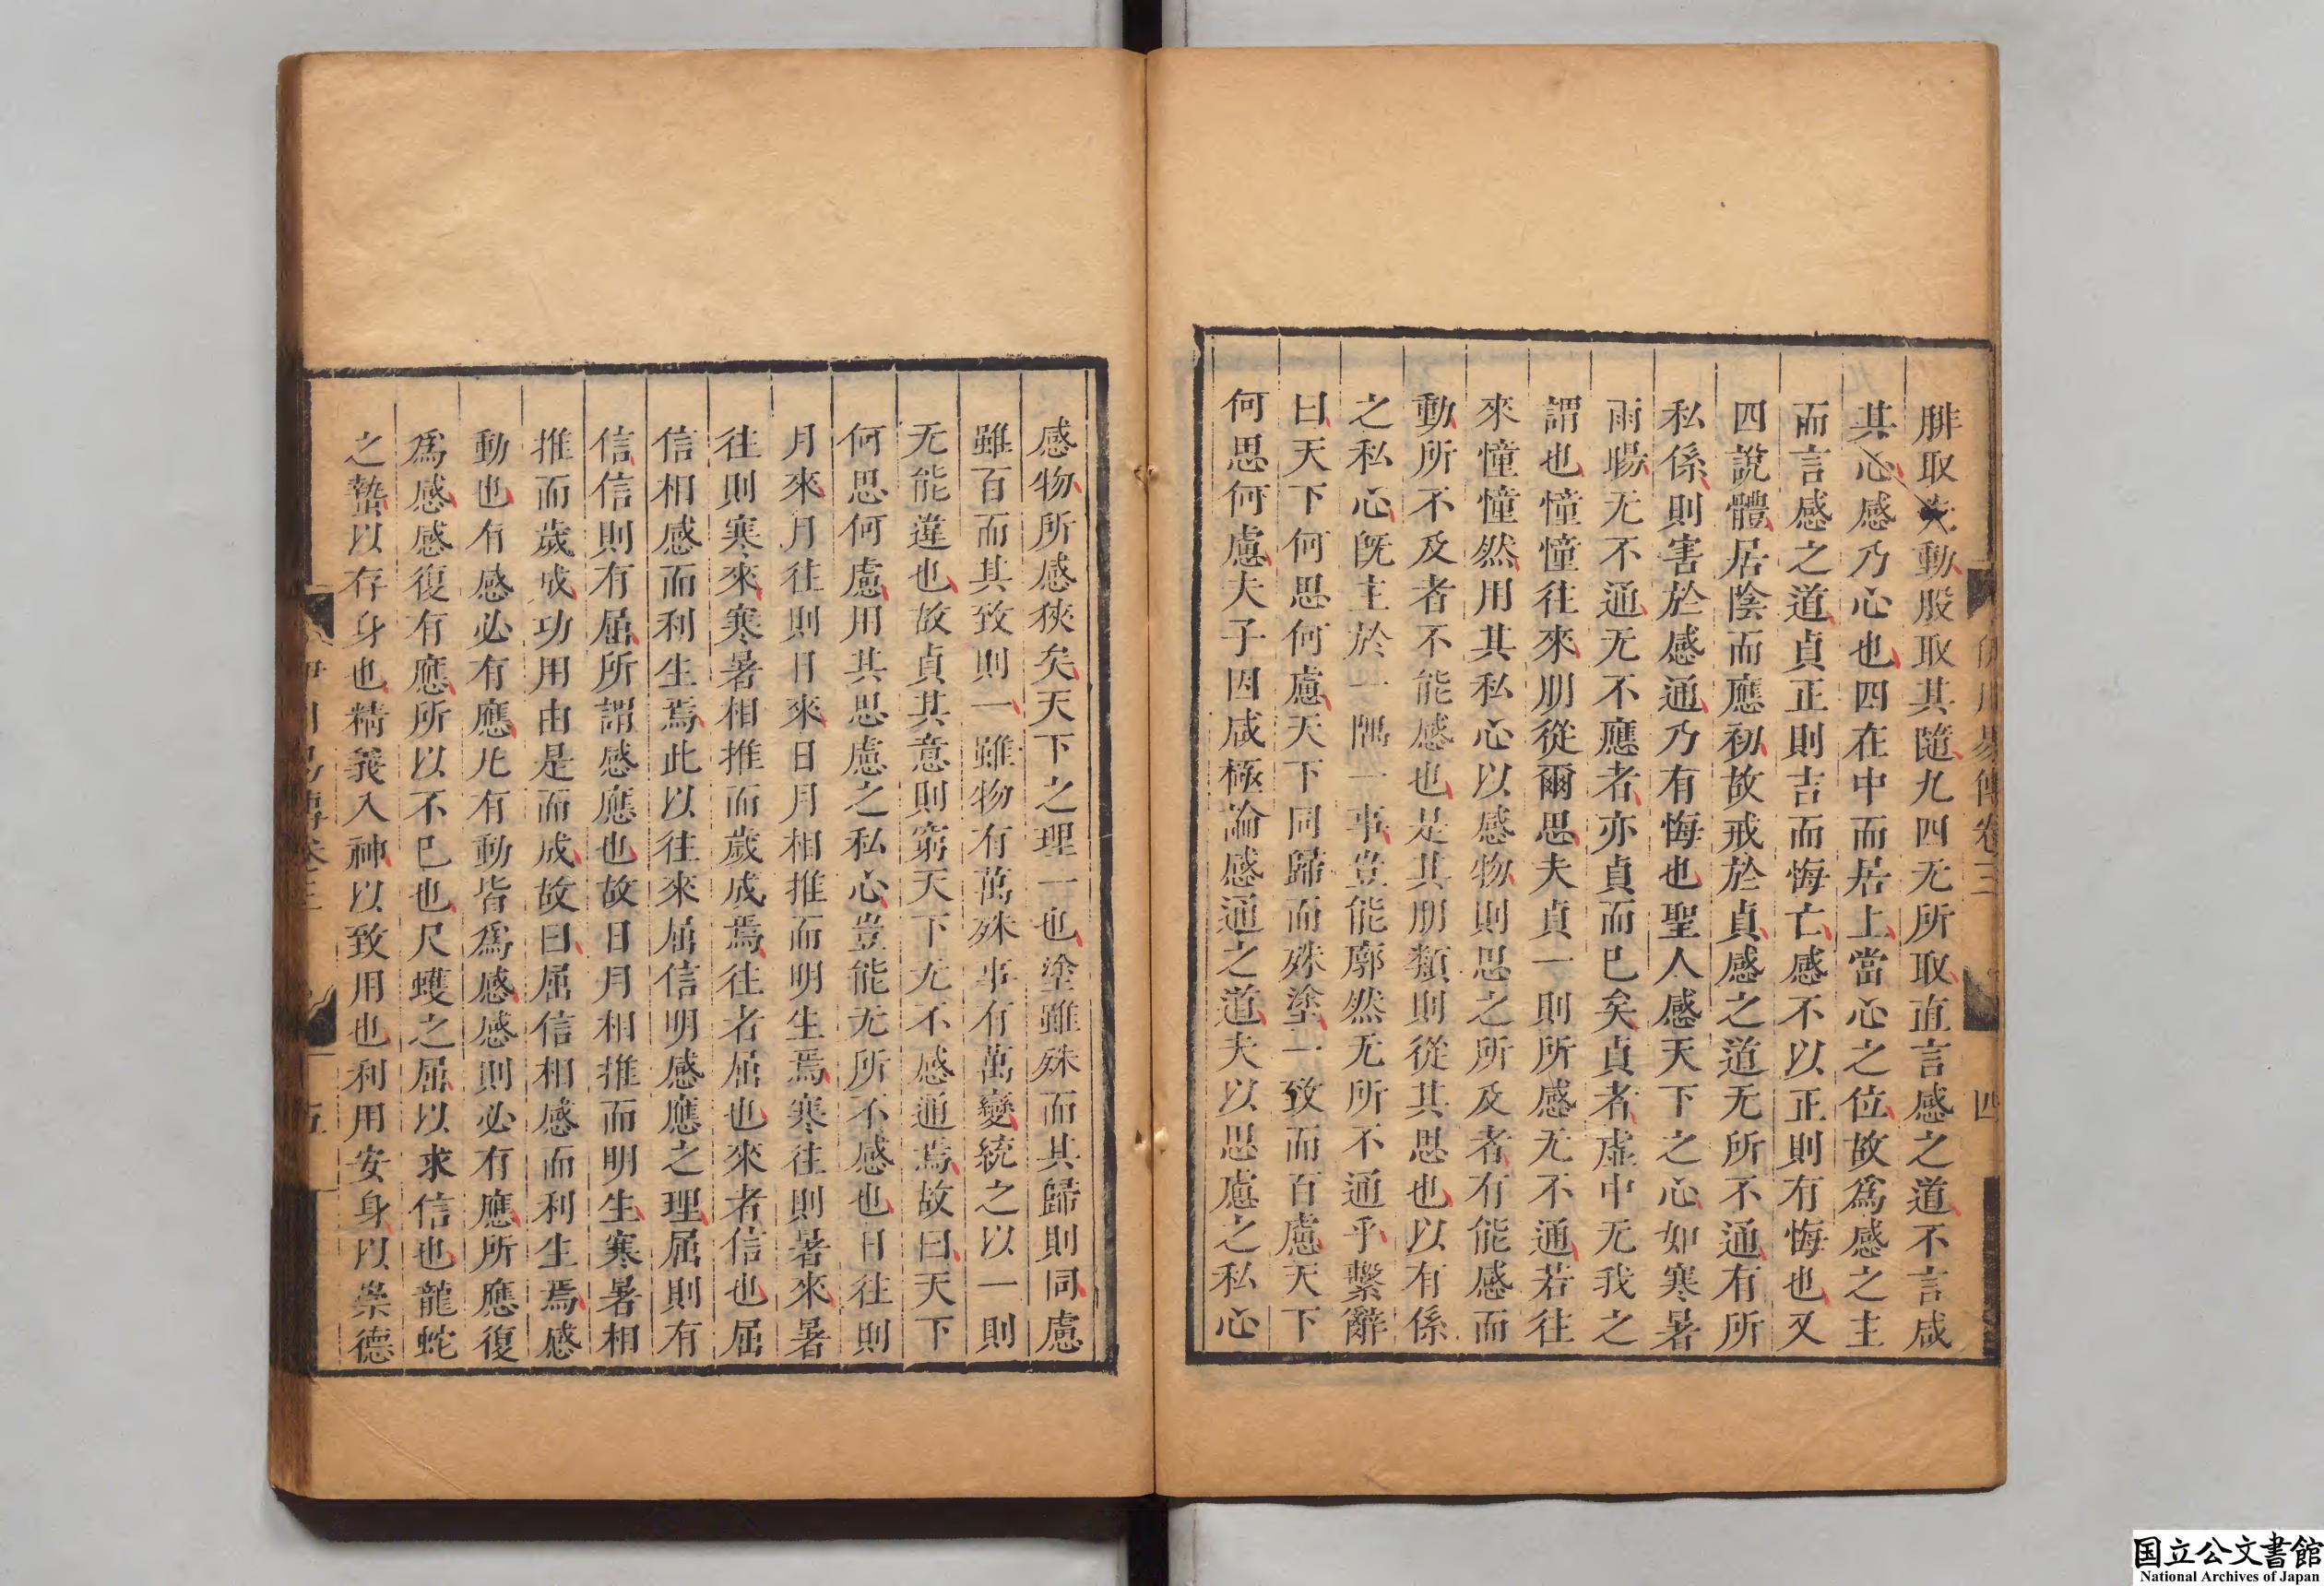 腓取先動股取其隨九四无所取直言感之道不言咸
其心感乃心也四在中而居上當心之位故爲感之主
而言感之道貞正則吉而悔亡感不以正則有悔也又
四說體居陰而應初故戒於貞感之道无所不通有所
私係則害於感通乃有悔也聖人感天下之心如寒暑
雨暘无不通无不應者亦貞而已矣貞者虛中无我之
謂也憧憧往來朋從爾思夫貞一則所感无不通若往
來憧憧然用其私心以感物則思之所及者有能感而
動所不及者不能感也是其朋類則從其思也以有係
之私心旣主於一隅一事豈能廓然无所不通乎繫辭
曰天下何思何慮天下同歸而殊塗一致而百慮天下
何思何慮夫子因咸極論感通之道夫以思慮之私心
伊川易傳卷三
四
感物所感狹矣天下之理一也塗雖殊而其歸則同慮
雖百而其致則一雖物有萬殊事有萬變統之以一則
无能違也故貞其意則窮天下无不感通焉故曰天下
何思何慮用其思慮之私心豈能无所不感也日往則
月來月往則日來日月相推而明生焉寒往則暑來暑
往則寒來寒暑相推而歲成焉往者屈也來者信也屈
信相感而利生焉此以往來屈信明感應之理屈則有
信信則有屈所謂感應也故日月相推而明生寒暑相
推而歲成功用由是而成故曰屈信相感而利生焉感
動也有感必有應凡有動皆爲感感則必有應所應復
爲感感復有應所以不已也尺蠖之屈以求信也龍蛇
之蟄以存身也精義入神以致用也利用安身以崇德
伊川易傳卷三
五
国立公文書館
National Archives of Japan